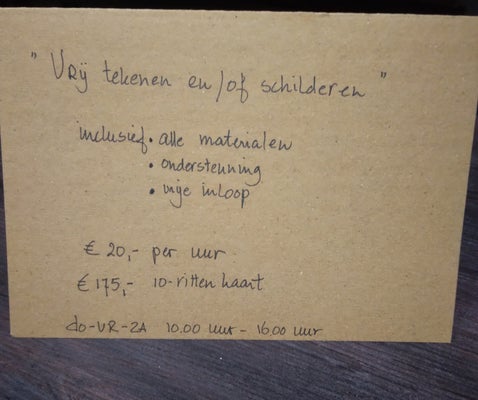 " VRIJ tekenen en/of schilderen "
inclusief • alle materialen
• ondersteuning
• vrije inloop
€ 20,- per uur
€ 175,- 10-ritten kaart
do-VR-ZA 10.00 uur - 16.00 uur